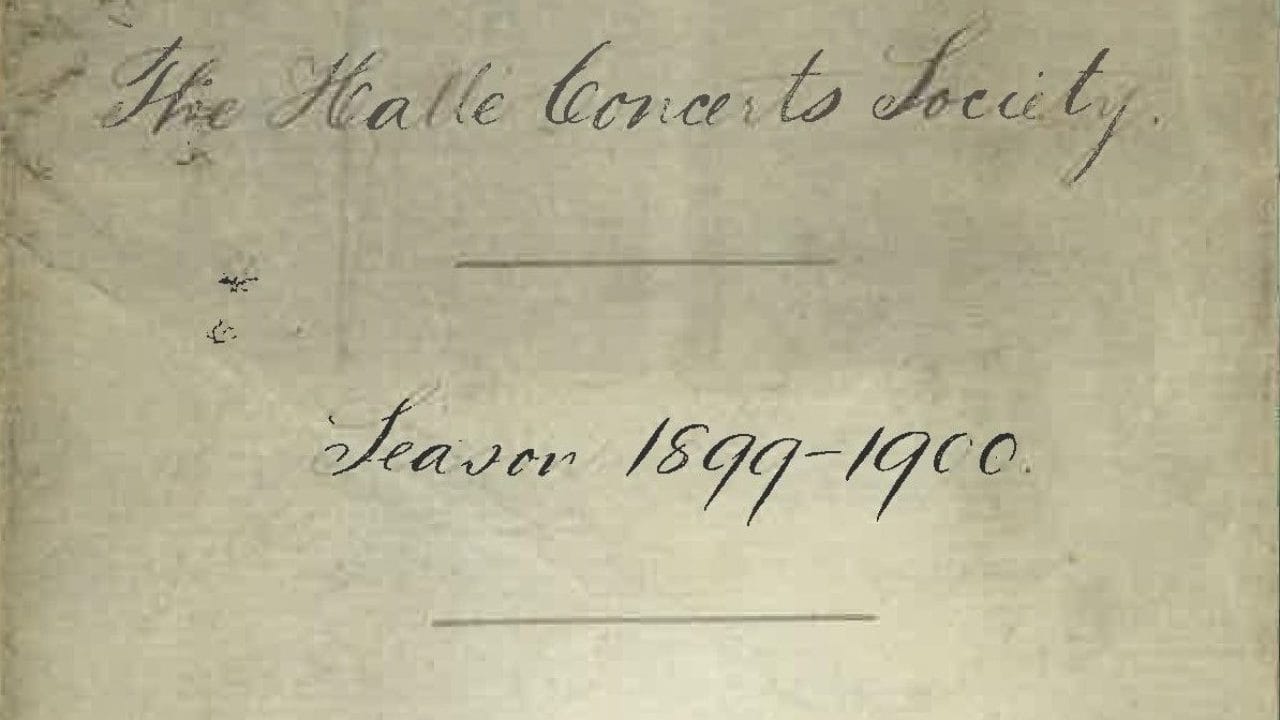 The Hallé Concerts Society.
Season 1899-1900.